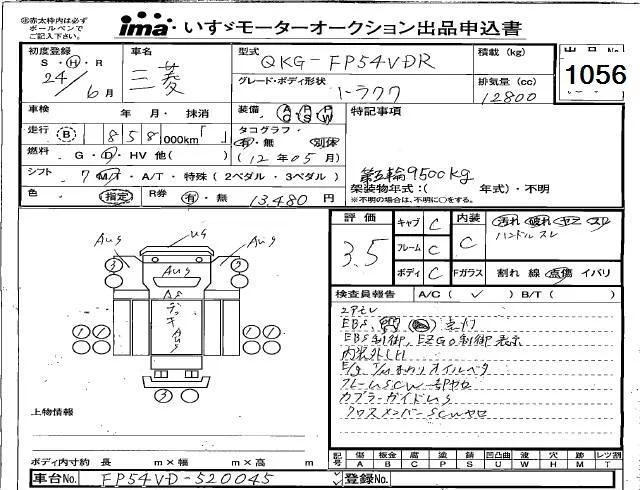 ※赤太枠内は必ず
ボールペンで
ご記入下さい。
ima いすゞモーターオークション出品申込書
初度登録 車名 型式 積載 (kg) 出品No.
S ・ H ・ R
24年 6月 三菱 QKG-FP54VDR 1056
グレード・ボディ形状 排気量 (cc)
トラクタ 12800
車検 年・月・抹消 装備 AC PS PW 特記事項
走行 B 858,000km「 」 タコグラフ・
有・無 別体
燃料 G・D・HV 他( ) (12年05月) 第五輪9500kg
シフト 7 M/T・A/T・特殊(2ペダル・3ペダル) 架装物年式:( 年式)・不明
※不明の場合は、不明に○をする。
色 指定 R券 有・無 13,480 円
評価 キャブ C 内装 汚れ 破れ
3.5 フレーム C C ハンドルスレ
ボディ C Fガラス 割れ 線 点傷 イバリ
AUg UG AUg
3 AUg
AS
デッキ
AUg
3
検査員報告 A/C( ✓ ) B/T( )
EBS 点灯
EBS制御, EZGO制御表示
E/g T/M まわりオイルベタ
カプラーガイドUS
上物情報
ボディ内寸約 長 m×幅 m×高 m
記号 傷 A 板金 B 腐 C 塗 P 錆 S 凹凸曲 U 波 W 穴 H 跡 M レツ割 T
車台No. FP54VD-520045 登録No.